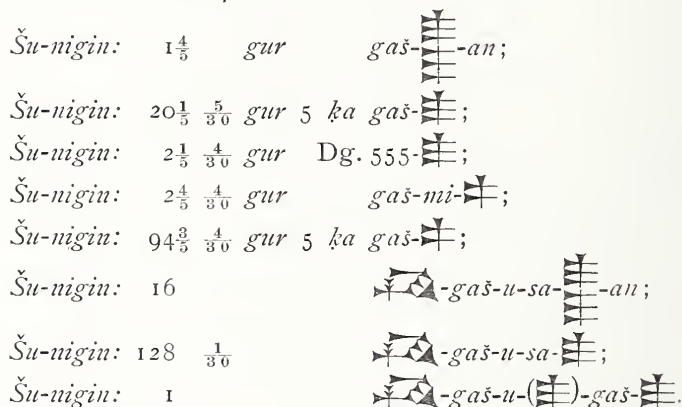 Šu-nigin: 1⅘ gur gaš- -an;
Šu-nigin: 20⅕ 5/30 gur 5 ḳa gaš- ;
Šu-nigin: 2⅕ 4/30 gur Dg. 555- ;
Šu-nigin: 2⅘ 4/30 gur gaš-mi- ;
Šu-nigin: 94⅗ 4/30 gur 5 ḳa gaš- ;
Šu-nigin: 16 -gaš-u-sa- -an;
Šu-nigin: 128 1/30 -gaš-u-sa- ;
Šu-nigin: 1 -gaš-u-( )-gaš- .